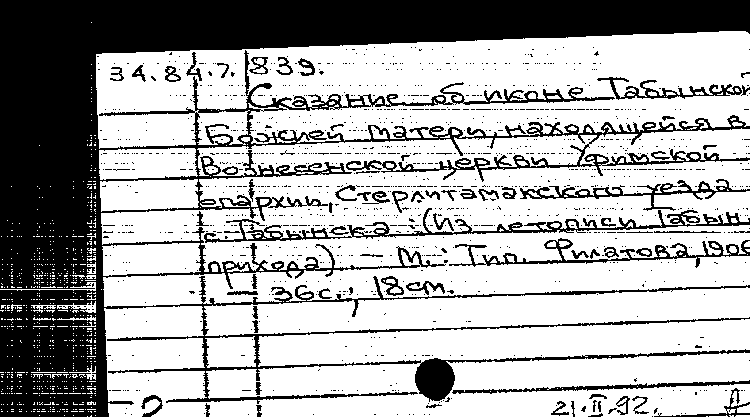 34.84.7.839.
Сказание об иконе Табынской
Божией матери, находящейся в
Вознесенской церкви Уфимской
епархии, Стерлитамакского уезда
с. Табынска : (Из летописи Табын.
прихода). – М. : Тип. Филатова, 1906
. – 36с.; 18см.
21.II.92.